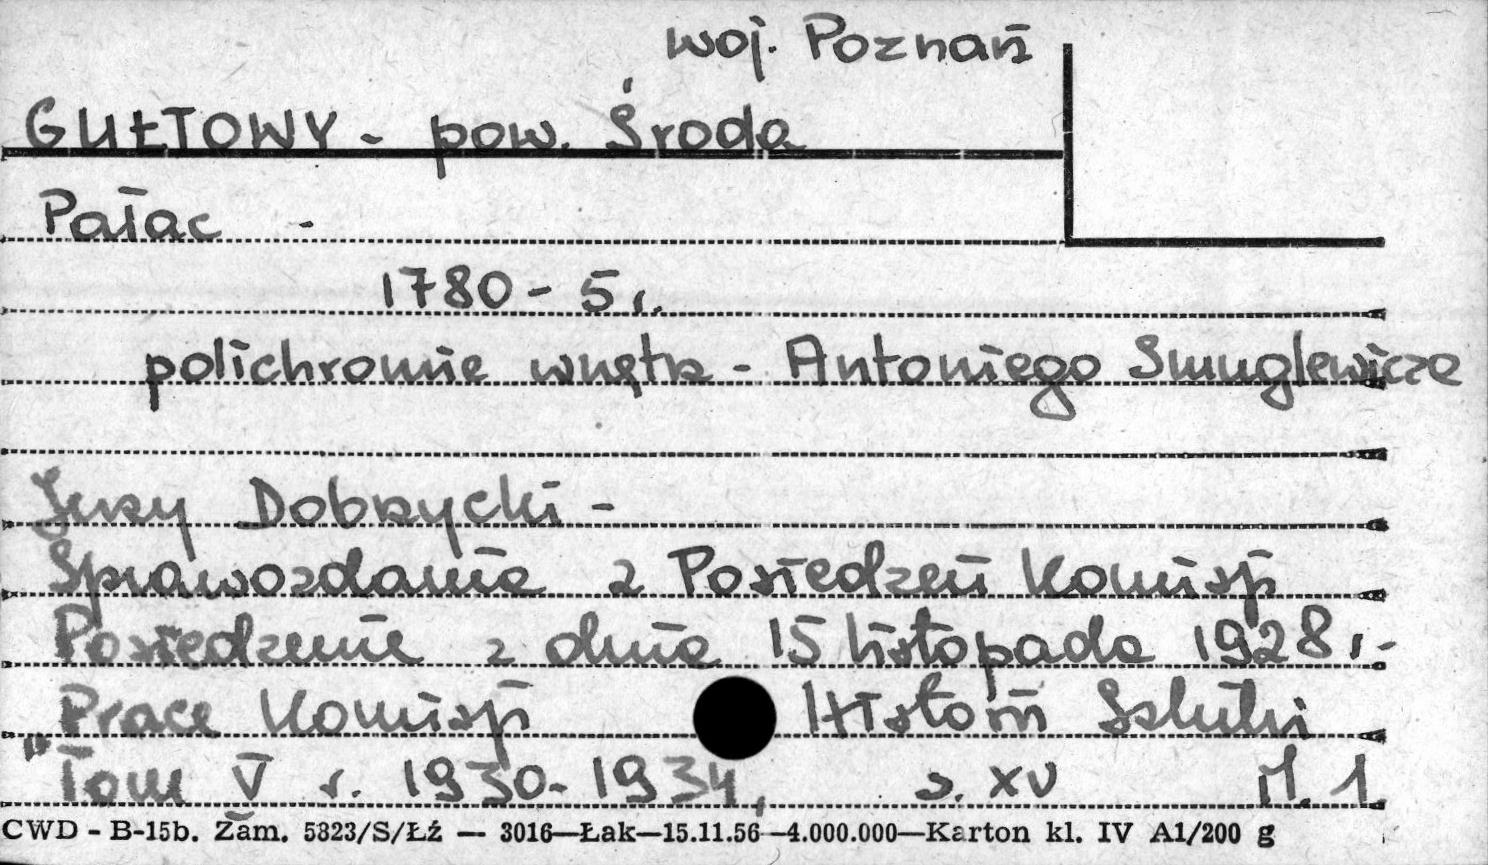 woj. Poznań
GUŁTOWY - pow. Środa
Pałac -
1780 - 5 r.
polichromie wnętrz - Antoniego Smuglewicza
Jerzy Dobrzycki -
Sprawozdania z Posiedzeń Komisji
Posiedzenie z dnia 15 listopada 1928 r. -
"Prace Komisji Historii Sztuki
Tom V r. 1930-1934, s. XV il. 1
CWD - B-15b. Zam. 5823/S/Łź — 3016—Łak—15.11.56—4.000.000—Karton kl. IV A1/200 g